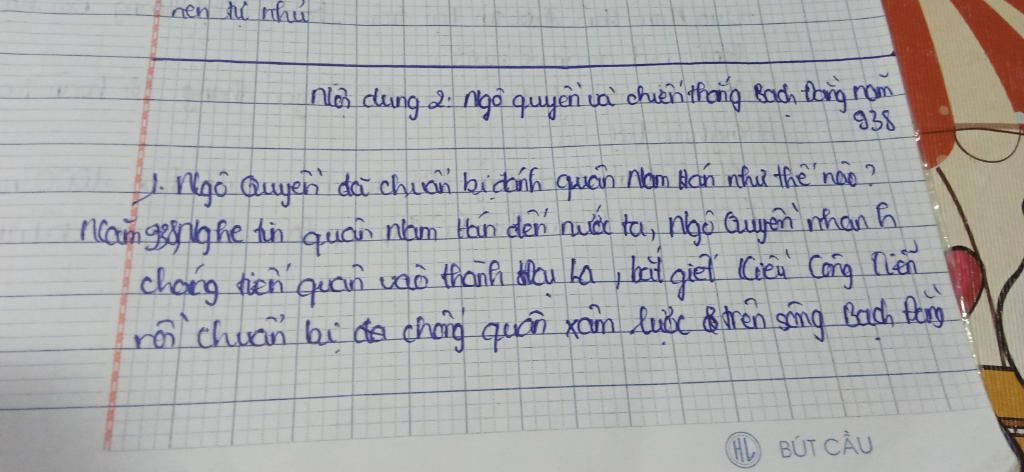 nên tự như
Nội dung 2: Ngô quyền và chiến thắng Bạch Đằng năm
938
1. Ngô Quyền đã chuẩn bị đánh quân Nam Hán như thế nào?
Năm 938 nghe tin quân Nam Hán đến nước ta, Ngô Quyền nhanh
chóng tiến quân vào thành Đại La, bắt giết Kiều Công Tiễn
rồi chuẩn bị chống quân xâm lược trên sông Bạch Đằng
HL BÚT CẦU